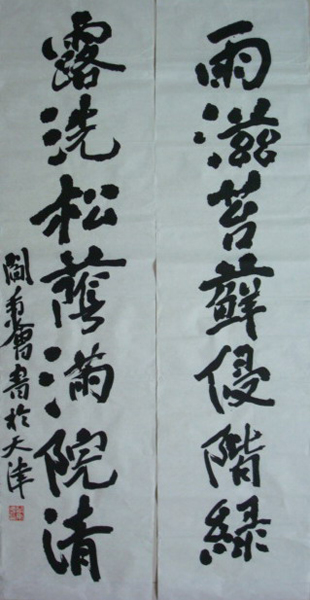 雨滋苔蘚侵階緑
露洗松蔭滿院清
閻秉會書於天津